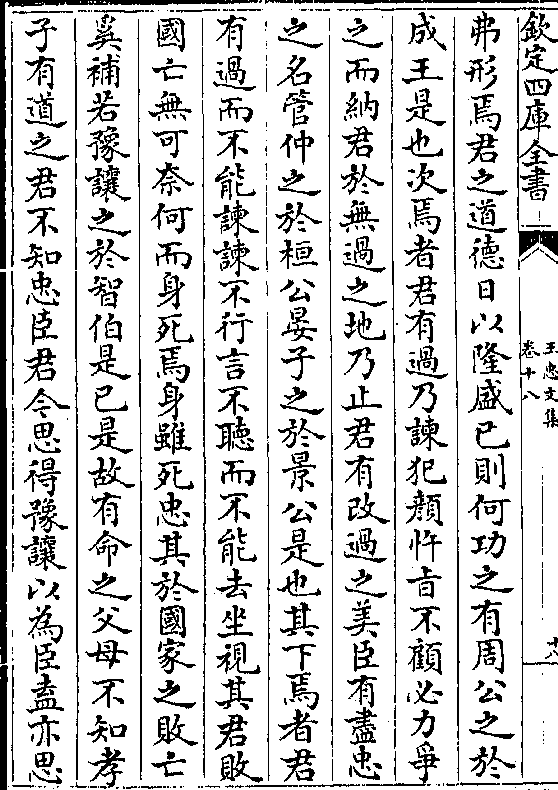 欽定四庫全書
王忠文集
卷十八
十八
弗形焉君之道德日以隆盛已則何功之有周公之於
成王是也次焉者君有過乃諫犯顔忤旨不顧必力爭
之而納君於無過之地乃止君有改過之美臣有盡忠
之名管仲之於桓公晏子之於景公是也其下焉者君
有過而不能諫諫不行言不聽而不能去坐視其君敗
國亡無可奈何而身死焉身雖死忠其於國家之敗亡
奚補若豫讓之於智伯是已是故有命之父母不知孝
子有道之君不知忠臣君今思得豫讓以為臣盍亦思